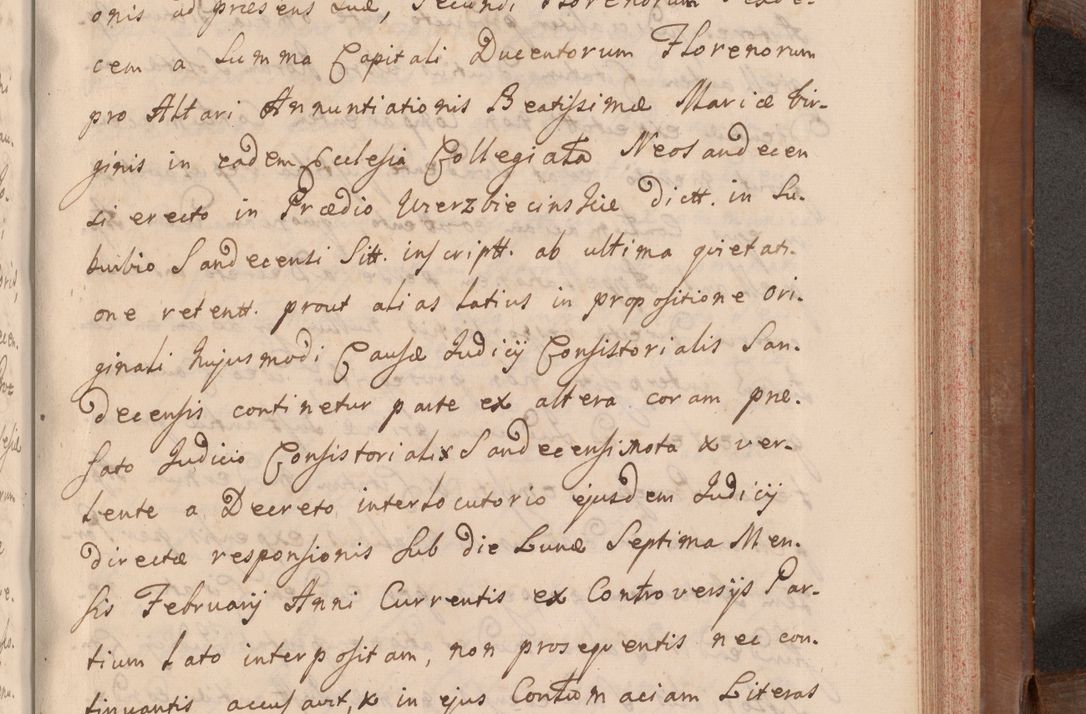 onis ad præsens suæ, secundi Florenorum sede-
cem a Summa Capitali Ducentorum Florenorum
pro Altari Annuntiationis Beatissimæ Mariæ Vir-
ginis in eadem Ecclesia Collegiata Neosandecen
si erecto in Prædio Wierzbiecinskie dictt. in Su-
burbio Sandecensi Sitt. inscriptt. ab ultima quietati-
one retentt. prout alias latius in propositione ori-
ginali hujusmodi Causæ Judicij Consistorialis San-
decensis continetur parte ex altera coram præ-
fato Judicio Consistoriali & Sandecensi mota & ver-
tente a Decreto interlocutorio ejusdem Judicij
directæ responsionis sub die Lunæ Septima Men-
sis Februarij Anni Currentis ex Controversijs Par-
tium lato interpositam, non prosequentis nec con-
tinuantis accusavit, & in ejus Contumaciam Literas